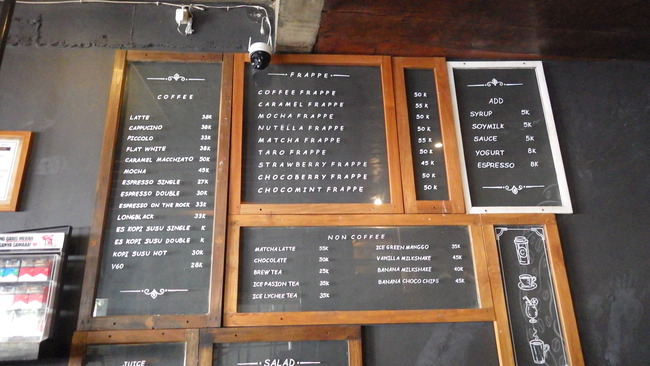 COFFEE
LATTE 38K
CAPPUCINO 38K
PICCOLO 33K
FLAT WHITE 38K
CARAMEL MACCHIATO 50K
MOCHA 45K
ESPRESSO SINGLE 27K
ESPRESSO DOUBLE 30K
ESPRESSO ON THE ROCK 33K
LONGBLACK 33K
ES KOPI SUSU SINGLE K
ES KOPI SUSU DOUBLE K
KOPI SUSU HOT 30K
V60 28K
FRAPPE
COFFEE FRAPPE 50 K
CARAMEL FRAPPE 55 K
MOCHA FRAPPE 50 K
NUTELLA FRAPPE 55 K
MATCHA FRAPPE 50 K
TARO FRAPPE 50 K
STRAWBERRY FRAPPE 45 K
CHOCOBERRY FRAPPE 50 K
CHOCOMINT FRAPPE 50 K
ADD
SYRUP 5K
SOYMILK 5K
SAUCE 5K
YOGURT 8K
ESPRESSO 8K
NON COFFEE
MATCHA LATTE 55K
CHOCOLATE 50K
BREW TEA 25K
ICE PASION TEA 35K
ICE LYCHEE TEA 35K
ICE GREEN MANGGO 35K
VANILLA MILKSHAKE 45K
BANANA MILKSHAKE 40K
BANANA CHOCO CHIPS 45K
JUICE
SALAD